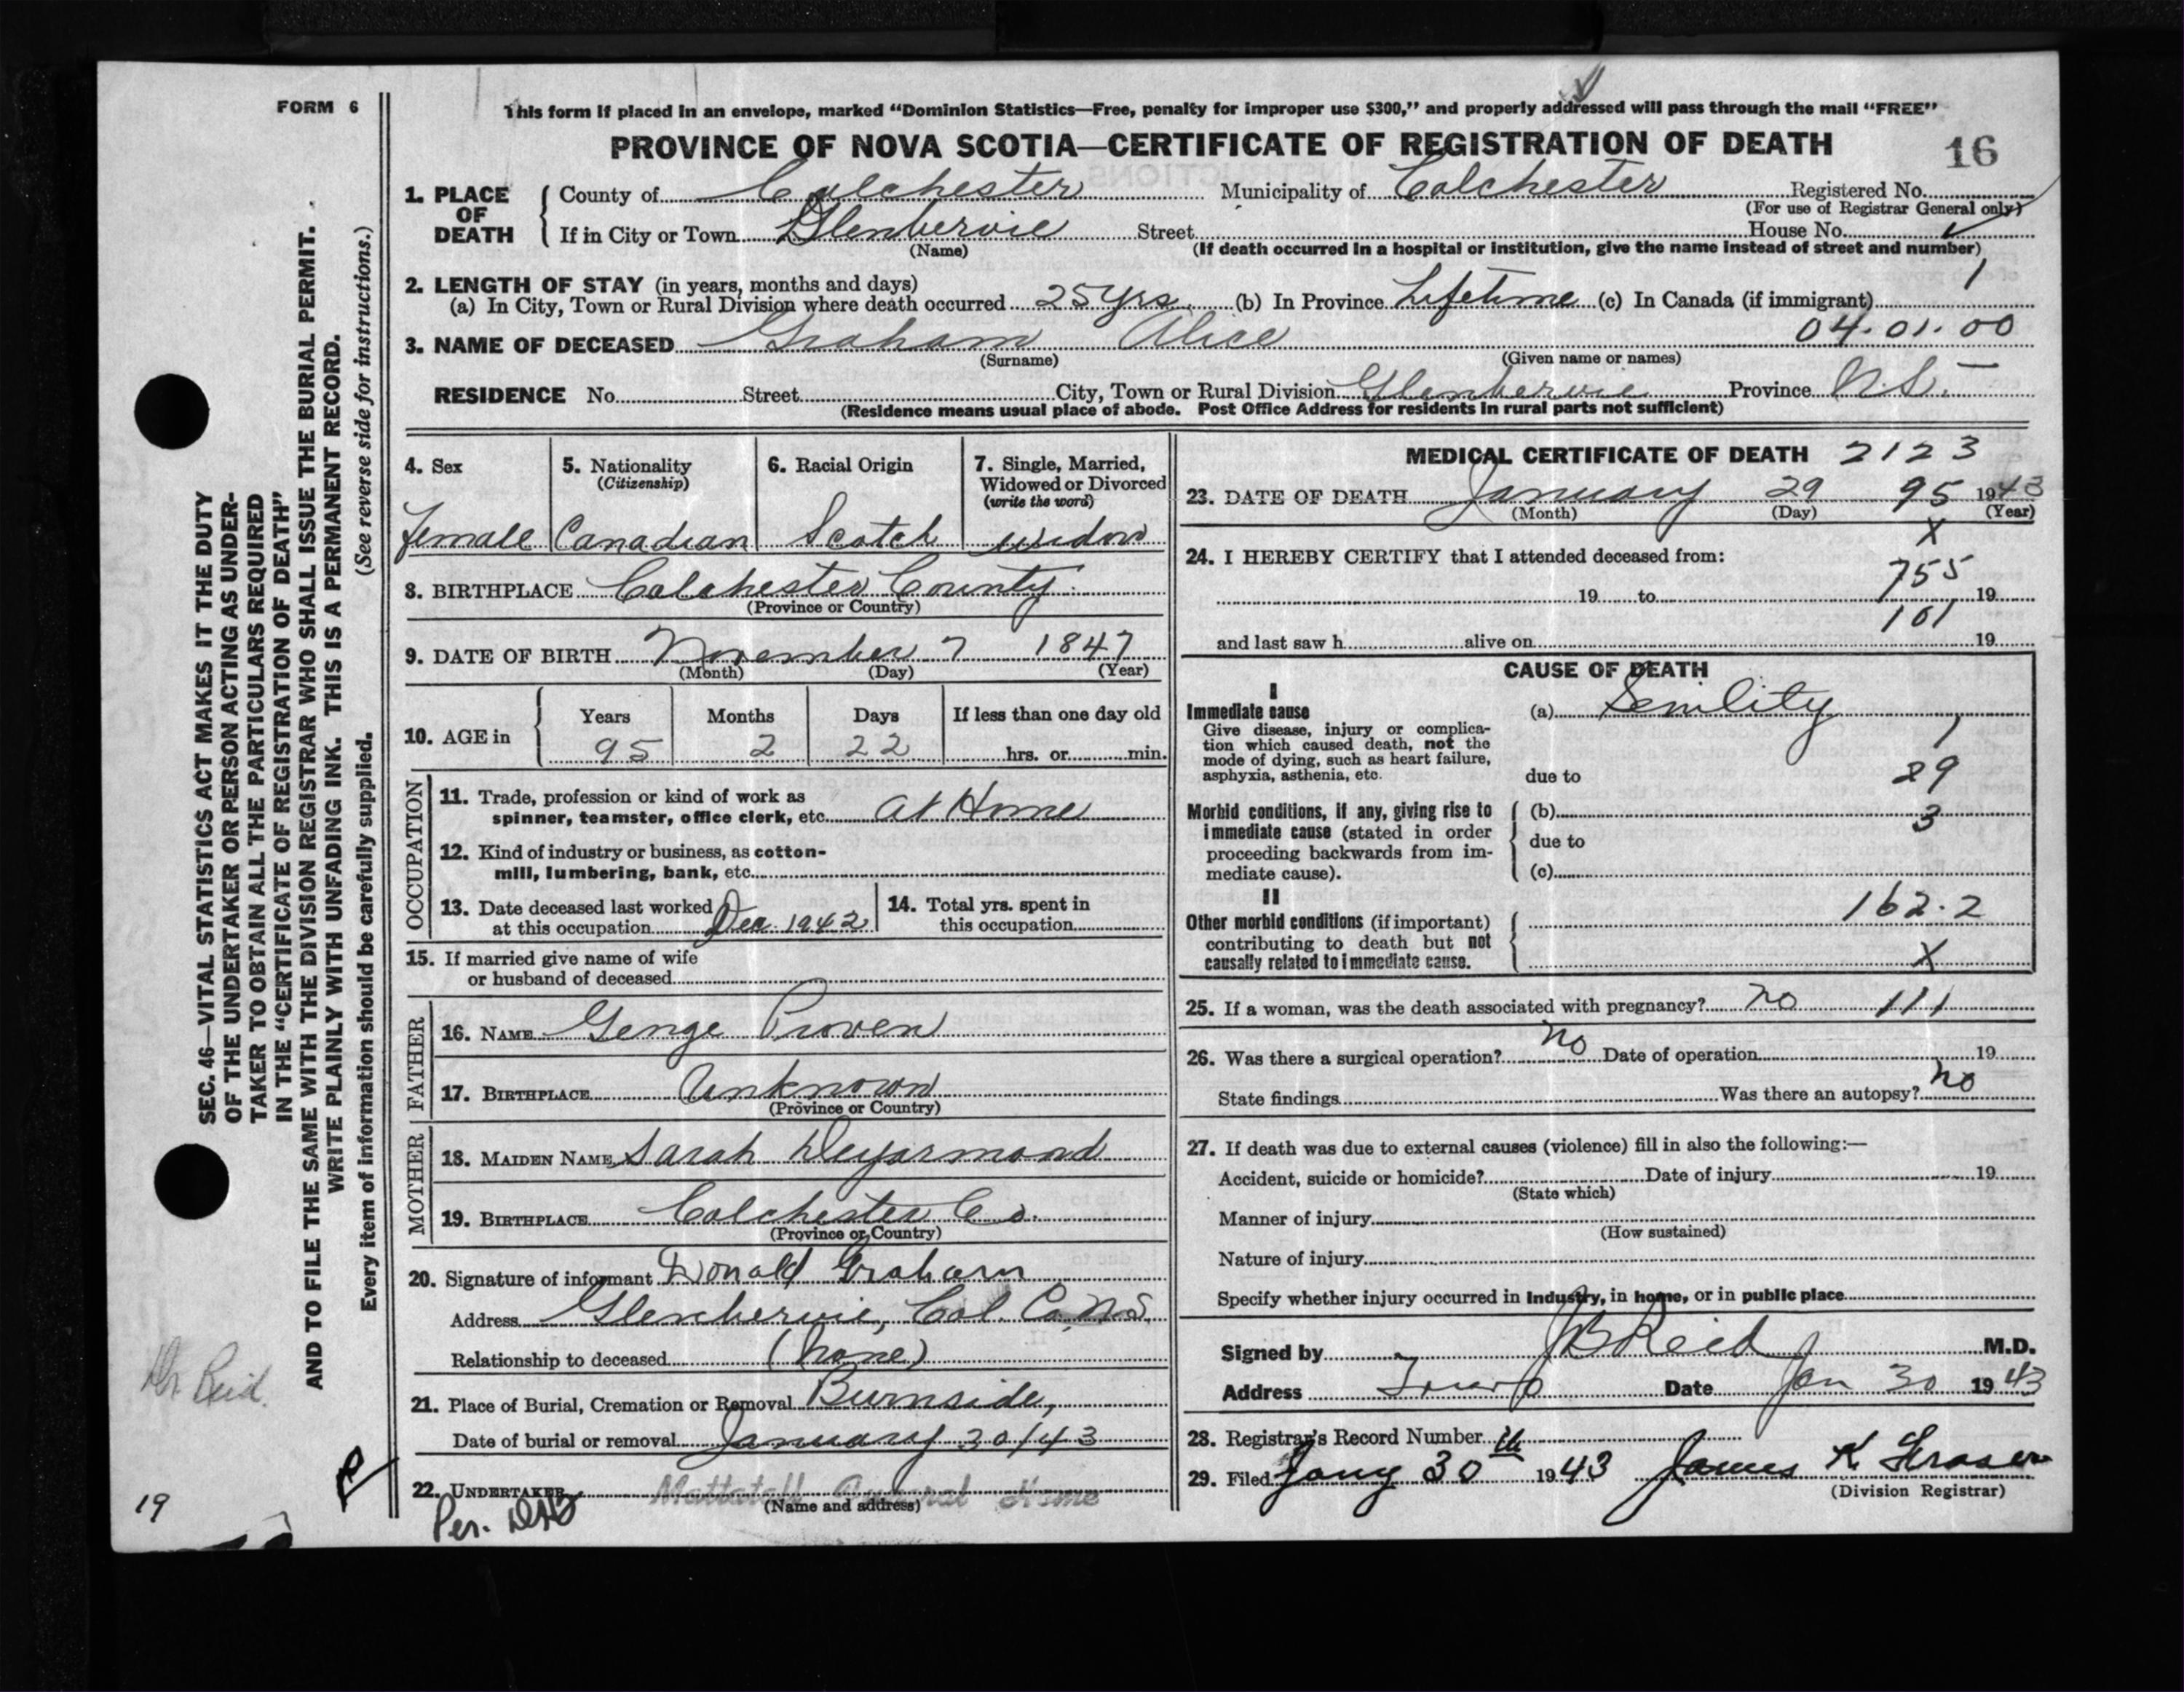 FORM 6
This form if placed in an envelope, marked "Dominion Statistics—Free, penalty for improper use $300," and properly addressed will pass through the mail "FREE"
PROVINCE OF NOVA SCOTIA—CERTIFICATE OF REGISTRATION OF DEATH 16
1. PLACE OF DEATH County of Colchester Municipality of Colchester Registered No.
(For use of Registrar General only)
If in City or Town Glenbervie Street House No.
(Name) (If death occurred in a hospital or institution, give the name instead of street and number)
2. LENGTH OF STAY (in years, months and days) 1
(a) In City, Town or Rural Division where death occurred 25 yrs. (b) In Province Lifetime (c) In Canada (if immigrant)
3. NAME OF DECEASED Graham Alice 04.01.00
(Surname) (Given name or names)
RESIDENCE No. Street City, Town or Rural Division Glenbervie Province N.S.
(Residence means usual place of abode. Post Office Address for residents in rural parts not sufficient)
4. Sex 5. Nationality (Citizenship) 6. Racial Origin 7. Single, Married, Widowed or Divorced (write the word)
Female Canadian Scotch widow
8. BIRTHPLACE Colchester County
(Province or Country)
9. DATE OF BIRTH November 7 1847
(Month) (Day) (Year)
10. AGE in Years Months Days If less than one day old
95 2 22 hrs. or min.
OCCUPATION
11. Trade, profession or kind of work as
spinner, teamster, office clerk, etc. at Home
12. Kind of industry or business, as cotton-
mill, lumbering, bank, etc.
13. Date deceased last worked
at this occupation Dec. 1942
14. Total yrs. spent in
this occupation
15. If married give name of wife
or husband of deceased
FATHER
16. NAME George Proven
17. BIRTHPLACE Unknown
(Province or Country)
MOTHER
18. MAIDEN NAME Sarah Deyarmond
19. BIRTHPLACE Colchester Co.
(Province or Country)
20. Signature of informant Donald Graham
Address Glenbervie, Col. Co. N.S.
Relationship to deceased (none)
21. Place of Burial, Cremation or Removal Burnside,
Date of burial or removal January 30/43
22. UNDERTAKER Mattatall Funeral Home
(Name and address)
Per.
MEDICAL CERTIFICATE OF DEATH 2123
23. DATE OF DEATH January 29 95 1943
(Month) (Day) (Year)
X
24. I HEREBY CERTIFY that I attended deceased from:
755
19 to 19
101
and last saw h alive on 19
CAUSE OF DEATH
I
Immediate cause (a) Senility
Give disease, injury or complica-
tion which caused death, not the
mode of dying, such as heart failure,
asphyxia, asthenia, etc. due to
1
29
3
Morbid conditions, if any, giving rise to (b)
immediate cause (stated in order due to
proceeding backwards from im-
mediate cause). (c)
II
162.2
Other morbid conditions (if important)
contributing to death but not
causally related to immediate cause. X
25. If a woman, was the death associated with pregnancy? no 111
26. Was there a surgical operation? no Date of operation 19
State findings Was there an autopsy? no
27. If death was due to external causes (violence) fill in also the following:—
Accident, suicide or homicide? Date of injury 19
(State which)
Manner of injury
(How sustained)
Nature of injury
Specify whether injury occurred in industry, in home, or in public place
Signed by JB Reid M.D.
Address Truro Date Jan 30 1943
28. Registrar's Record Number
29. Filed Jany 30th 1943 James K. Fraser
(Division Registrar)
SEC. 46—VITAL STATISTICS ACT MAKES IT THE DUTY
OF THE UNDERTAKER OR PERSON ACTING AS UNDER-
TAKER TO OBTAIN ALL THE PARTICULARS REQUIRED
IN THE "CERTIFICATE OF REGISTRATION OF DEATH"
AND TO FILE THE SAME WITH THE DIVISION REGISTRAR WHO SHALL ISSUE THE BURIAL PERMIT.
WRITE PLAINLY WITH UNFADING INK. THIS IS A PERMANENT RECORD.
Every item of information should be carefully supplied. (See reverse side for instructions.)
Dr. Reid.
19